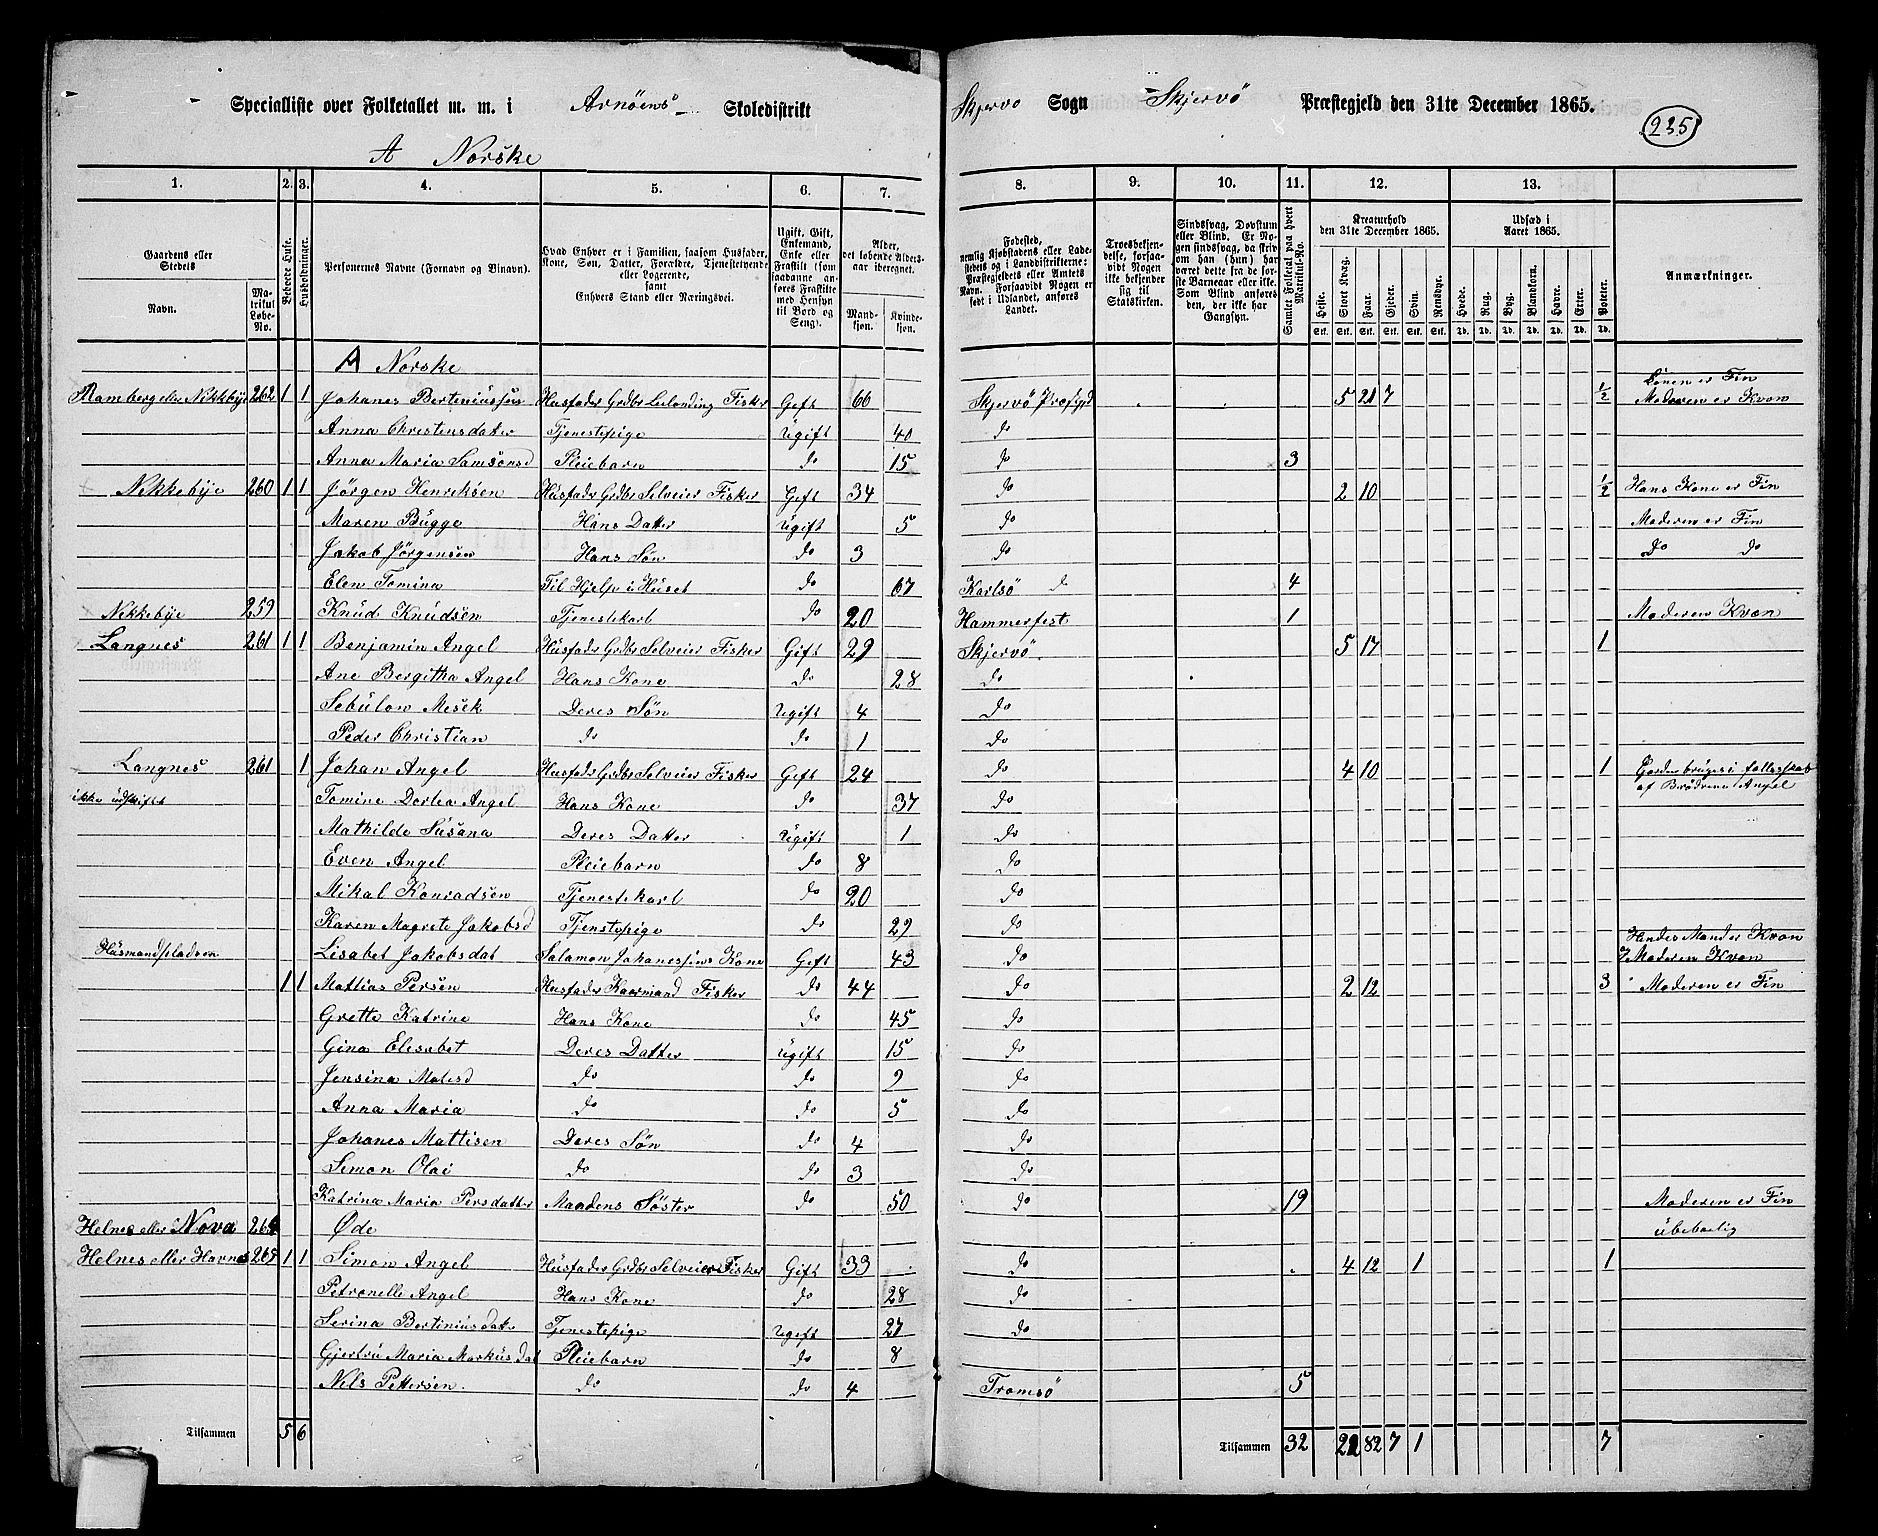 Specialliste over Folketallet m. m. i Arnøens Skoledistrikt Skjervø Sogn Skjervø Præstegjeld den 31te December 1865.
235
A Norske
1. 2. 3. 4. 5. 6. 7. 8. 9. 10. 11. 12. 13.
Gaardens eller Stedets
Navn.
Matrikul Løbe-No.
Beboede Huse.
Husholdninger.
Personernes Navne (Fornavn og Binavn).
Hvad Enhver er i Familien, saasom Husfader, Kone, Søn, Datter, Forældre, Tjenestetyende eller Logerende, samt Enhvers Stand eller Næringsvei.
Ugift, Gift, Enkemand, Enke eller Fraskilt (som saadanne anføres Fraskilte med Hensyn til Bord og Seng).
Alder, det løbende Aldersaar iberegnet.
Mandkjøn. Kvindekjøn.
Fødested, nemlig Kjøbstadens eller Ladestedets og i Landdistrikterne: Præstegjeldets eller Amtets Navn. Forsaavidt Nogen er født i Udlandet, anføres Landet.
Troesbekjendelse, forsaavidt Nogen ikke bekjender sig til Statskirken.
Sindssvag, Døvstum eller Blind. Er Nogen sindssvag, da skrives om han (hun) har været dette fra de første Barneaar eller ikke. Som Blind anføres den, der ikke har Gangsyn.
Samlet Folketal paa hvert Matrikul-No.
Kreaturhold den 31te December 1865.
Heste. Stort Kvæg. Faar. Gjeder. Svin. Rensdyr.
Udsæd i Aaret 1865.
Hvede. Rug. Byg. Blandkorn. Havre. Erter. Poteter.
Anmærkninger.
A Norske
Ramberg eller Nikkebye 262 1 1 Johanes Bertiniussen Husfader Grdbr Leilending Fisker Gift 66 Skjervø Præstgjd 5 21 7 ½ Konen er Fin Moderen er Kvæn
Anna Christensdatter Tjenestepige Ugift 40 do
Anna Maria Samsonsd Pleiebarn do 15 do 3
Nikkebye 260 1 1 Jörgen Henriksen Husfader Grdbr Selveier Fisker Gift 34 do 2 10 ½ Hans Kone er Fin
Maren Bugge Hans Datter Ugift 5 do Moderen er Fin
Jakob Jörgensen Hans Søn do 3 do Do Do
Elen Tomina Til Hjelp i Huset do 67 Karlsö 4
Nikkebye 259 Knud Knudsen Tjenestekarl do 20 Hammerfest 1 Moderen Kvæn
Langnes 261 1 1 Benjamin Angel Husfader Grdbr Selveier Fisker Gift 29 Skjervø 5 17 1
Ane Bergitha Angel Hans Kone do 28 do
Sebulon Mesek Deres Søn Ugift 4 do
Peder Christian do do 1 do
Langnes 261 1 Johan Angel Husfader Grdbr Selveier Fisker Gift 24 do 4 10 1 Gorden bruges i fællesskab af Brödrene Angel
ikke udskiftet Tomine Dortea Angel Hans Kone do 37 do
Mathilde Susana Deres Datter Ugift 1 do
Even Angel Pleiebarn do 8 do
Mikal Konradsen Tjenestekarl do 20 do
Karen Magrete Jakobsd Tjenstepige do 29 do
Husmandspladsen Lisabet Jakobsdat Salamon Johanessens Kone Gift 43 do Hendes Mand er Kvæn Moderen Kvæn
1 1 Mattias Persen Husfader Kaarmand Fisker do 44 do 2 12 3 Moderen er Fin
Grette Katrine Hans Kone do 45 do
Gina Elesabet Deres Datter Ugift 15 do
Jensina Matisd do do 9 do
Anna Maria do do 5 do
Johanes Mattisen Deres Søn do 4 do
Simon Olai do do 3 do
Katrina Maria Persdatter Mandens Söster do 50 do 19 Moderen er Fin
Helnes eller Nova 264 Øde ubeboelig
Helnes eller Havnes 265 1 1 Simon Angel Husfader Grdbr Selveier Fisker Gift 33 do 4 12 1 1
Petronelle Angel Hans Kone do 28 do
Serina Bertiniusdatr Tjenestepige Ugift 27 do
Gjertru Maria Markusdat Pleiebarn do 8
Nels Pettersen do do 4 Tromsö 5
Tilsammen 5 6 Tilsammen 32 22 82 7 1 7